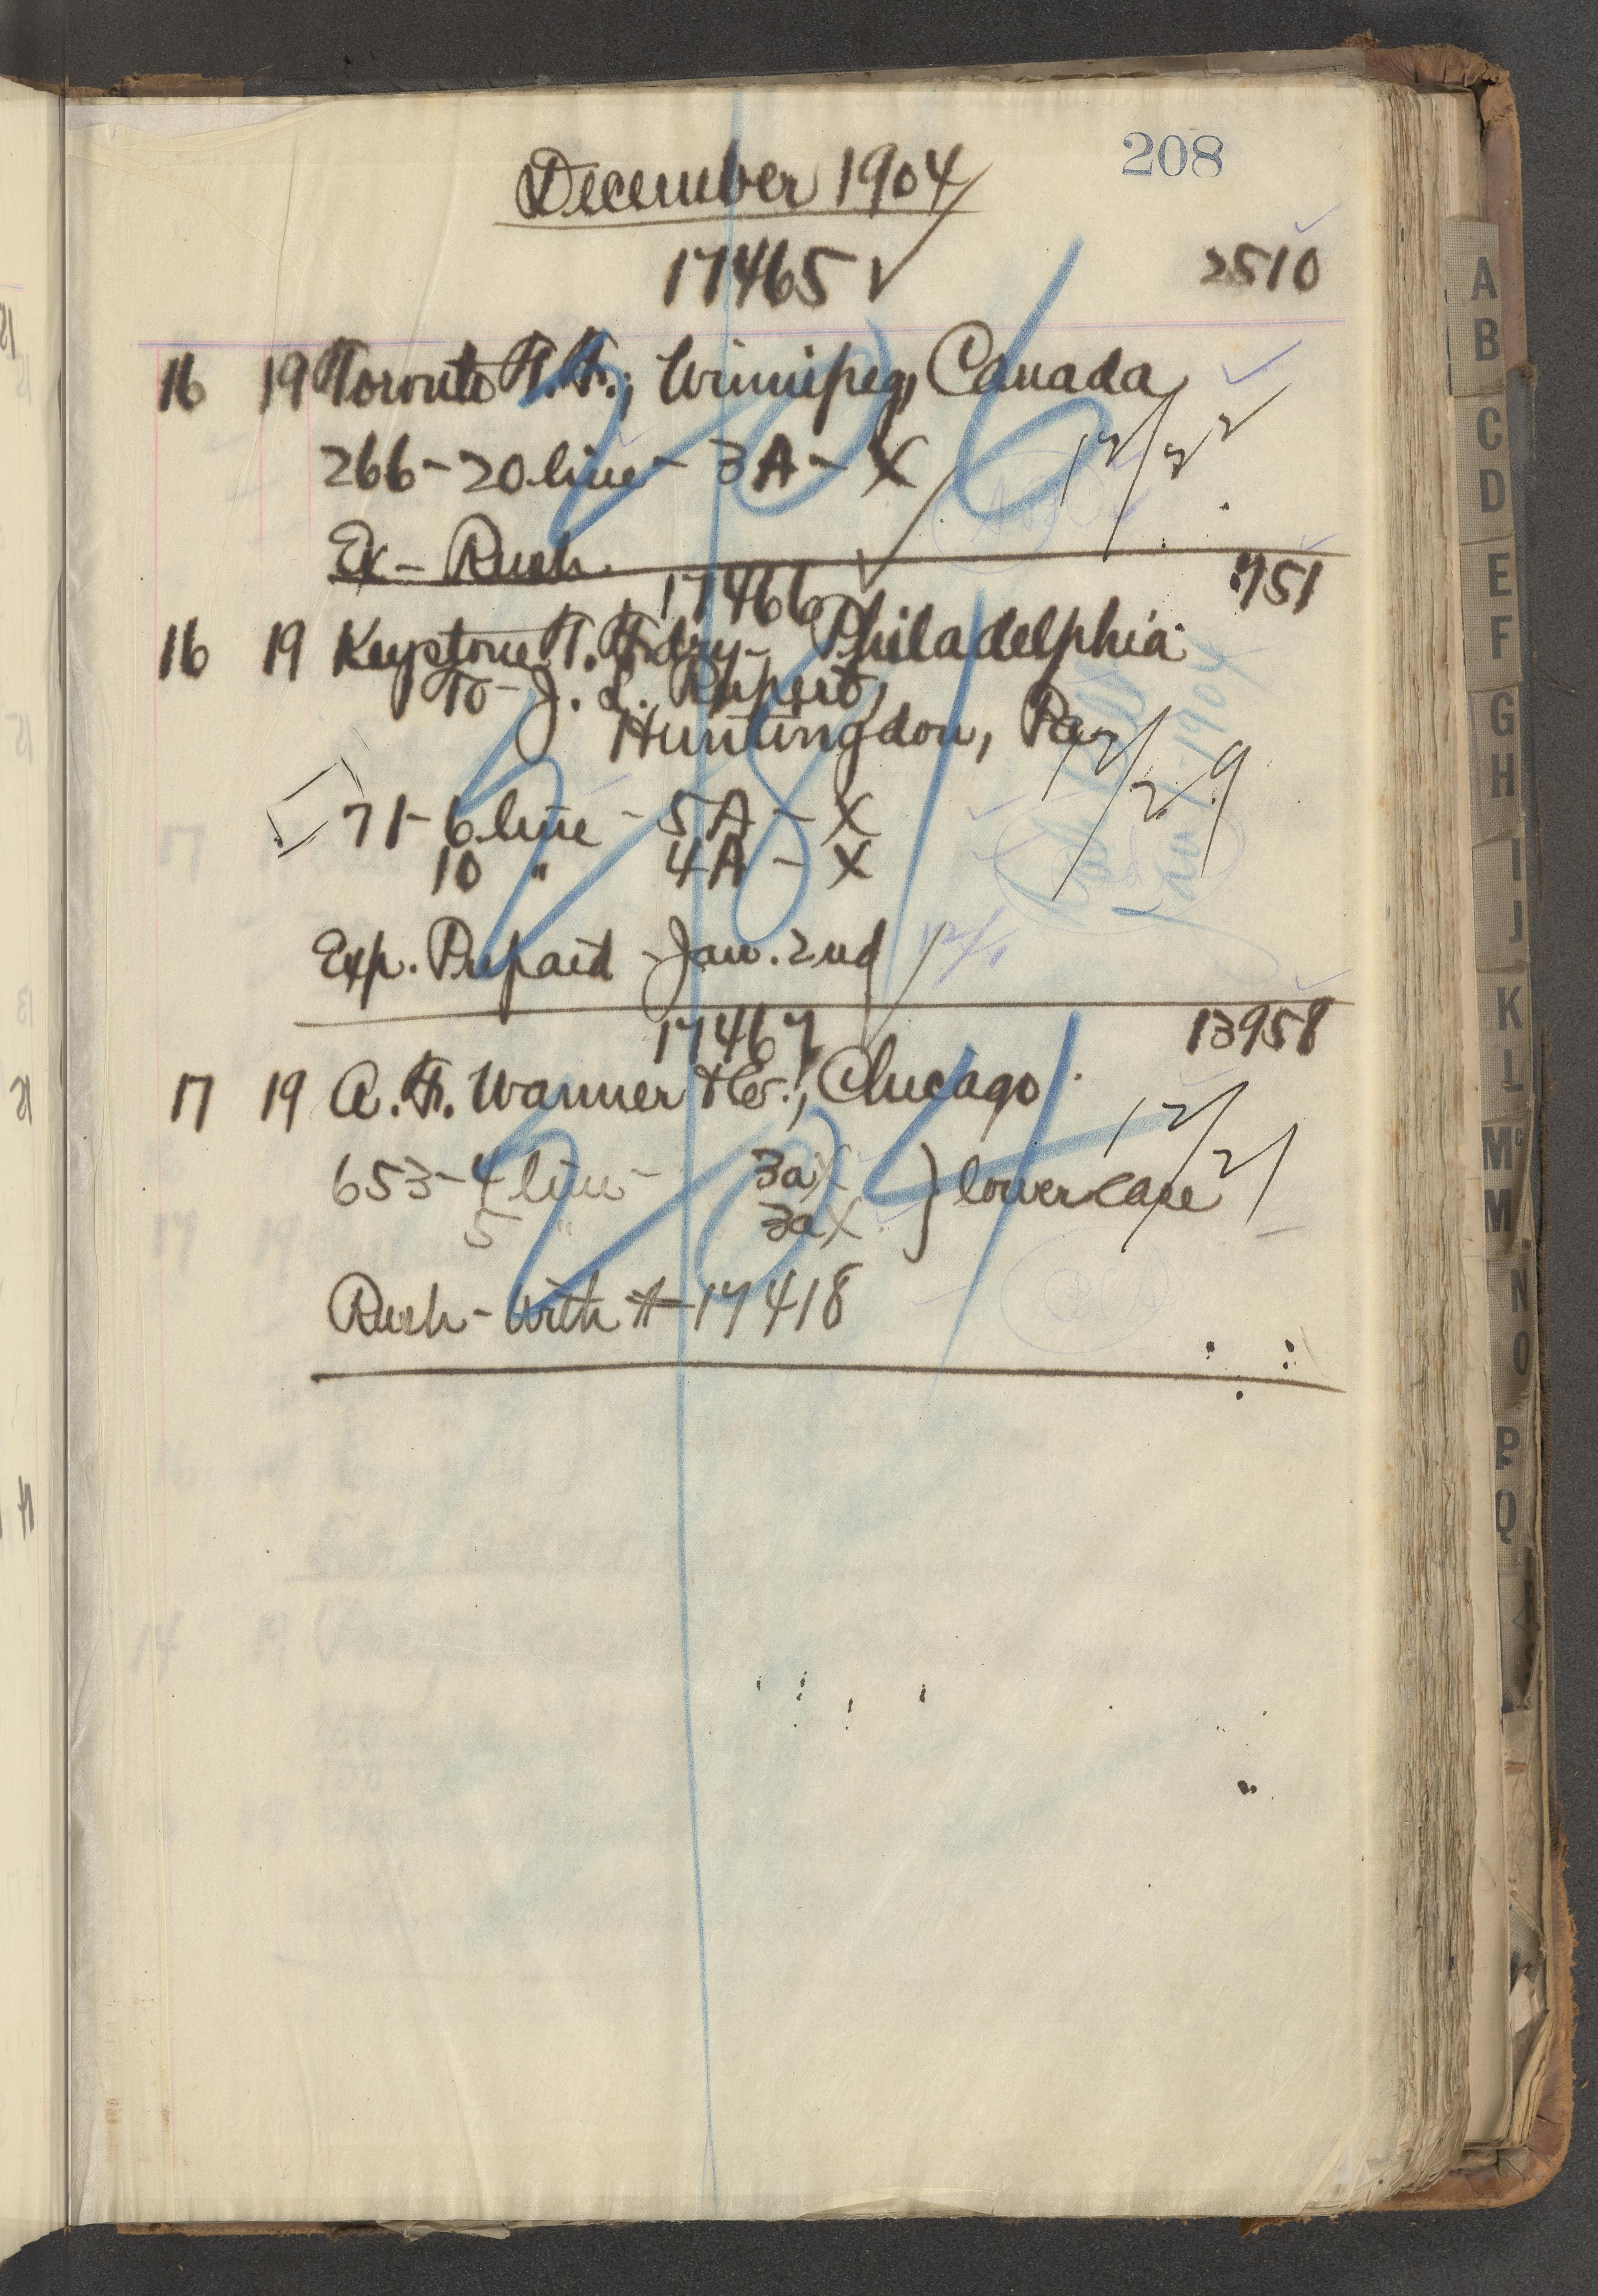 208
December 1904
17465 ✓ 2510
16 19 Toronto T. F., Winnipeg, Canada
266 - 20 line - 3A - X 12/22
Ex - Rush.
17466 751
16 19 Keystone T. Fdry - Philadelphia
To - J. L. Rupert,
Huntingdon, Pa.
71 - 6 line - 5A - X 12/29
10 " 4A - X
Exp. Prepaid - Jan. 2nd
17467 13958
17 19 A. F. Wanner & Co., Chicago
653 - 4 line - 3a X } lower case 12/21
5 " 3a X
Rush - With # 17418
A
B
C
D
E
F
G
H
I
J
K
L
M
M
N
O
P
Q